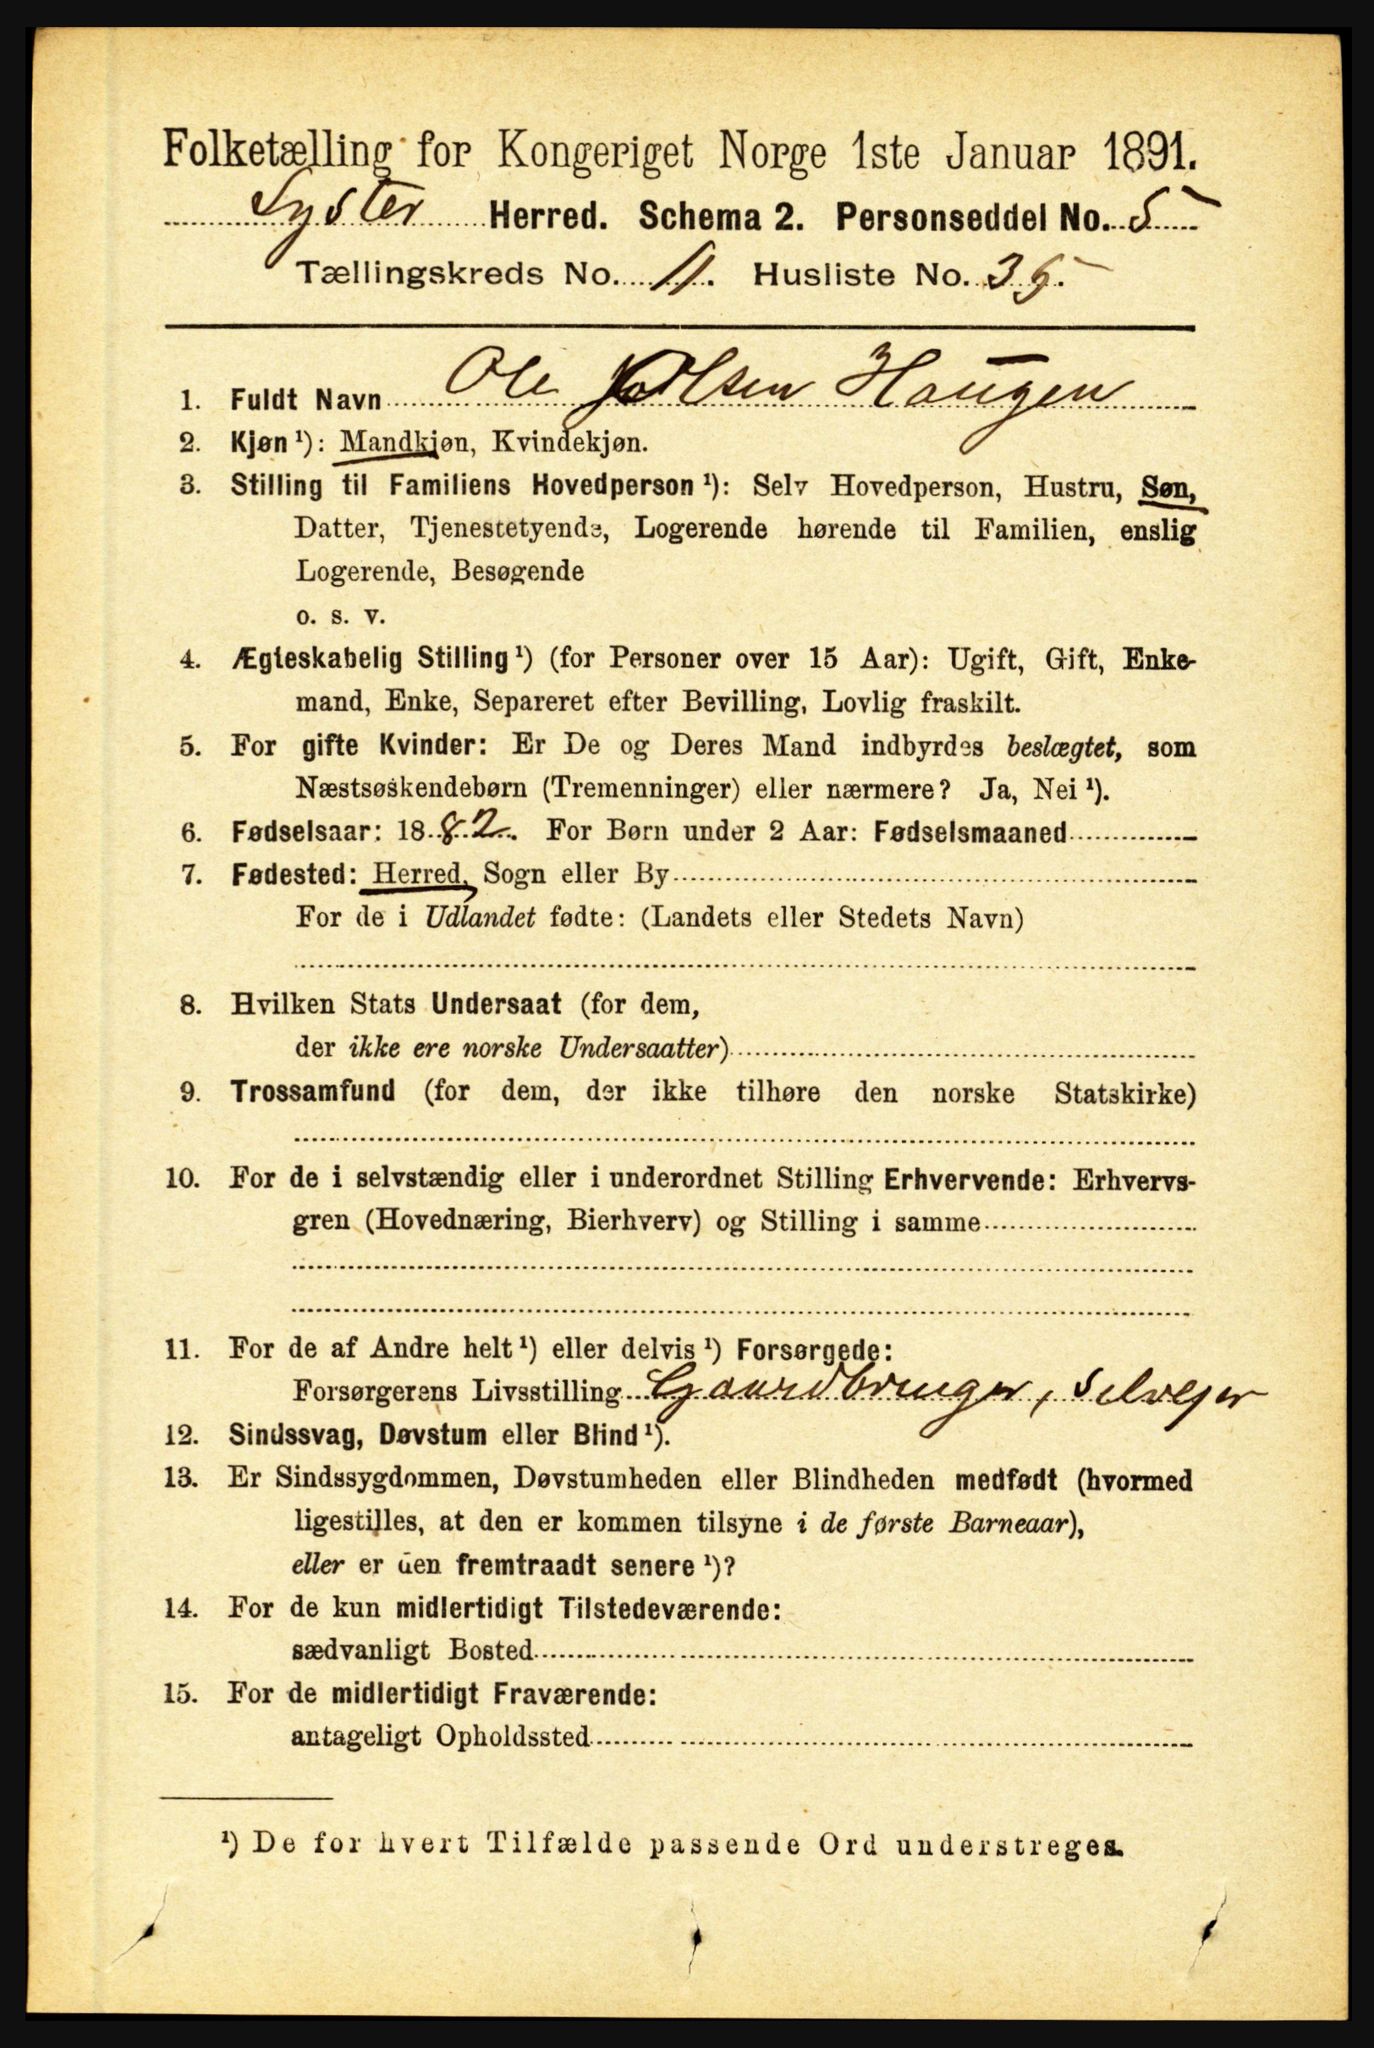 Folketælling for Kongeriget Norge 1ste Januar 1891.
Lyster Herred. Schema 2. Personseddel No. 5
Tællingskreds No. 11. Husliste No. 35.
1. Fuldt Navn Ole Olsen Haugen
2. Kjøn ¹): Mandkjøn, Kvindekjøn.
3. Stilling til Familiens Hovedperson ¹): Selv Hovedperson, Hustru, Søn,
Datter, Tjenestetyende, Logerende hørende til Familien, enslig
Logerende, Besøgende
o. s. v.
4. Ægteskabelig Stilling ¹) (for Personer over 15 Aar): Ugift, Gift, Enke-
mand, Enke, Separeret efter Bevilling, Lovlig fraskilt.
5. For gifte Kvinder: Er De og Deres Mand indbyrdes beslægtet, som
Næstsøskendebørn (Tremenninger) eller nærmere? Ja, Nei ¹).
6. Fødselsaar: 1882. For Børn under 2 Aar: Fødselsmaaned
7. Fødested: Herred, Sogn eller By
For de i Udlandet fødte: (Landets eller Stedets Navn)
8. Hvilken Stats Undersaat (for dem,
der ikke ere norske Undersaatter)
9. Trossamfund (for dem, der ikke tilhøre den norske Statskirke)
10. For de i selvstændig eller i underordnet Stilling Erhvervende: Erhvervs-
gren (Hovednæring, Bierhverv) og Stilling i samme
11. For de af Andre helt ¹) eller delvis ¹) Forsørgede:
Forsørgerens Livsstilling Gaardbruger, Selvejer
12. Sindssvag, Døvstum eller Blind ¹).
13. Er Sindssygdommen, Døvstumheden eller Blindheden medfødt (hvormed
ligestilles, at den er kommen tilsyne i de første Barneaar),
eller er den fremtraadt senere ¹)?
14. For de kun midlertidigt Tilstedeværende:
sædvanligt Bosted
15. For de midlertidigt Fraværende:
antageligt Opholdssted
¹) De for hvert Tilfælde passende Ord understreges.